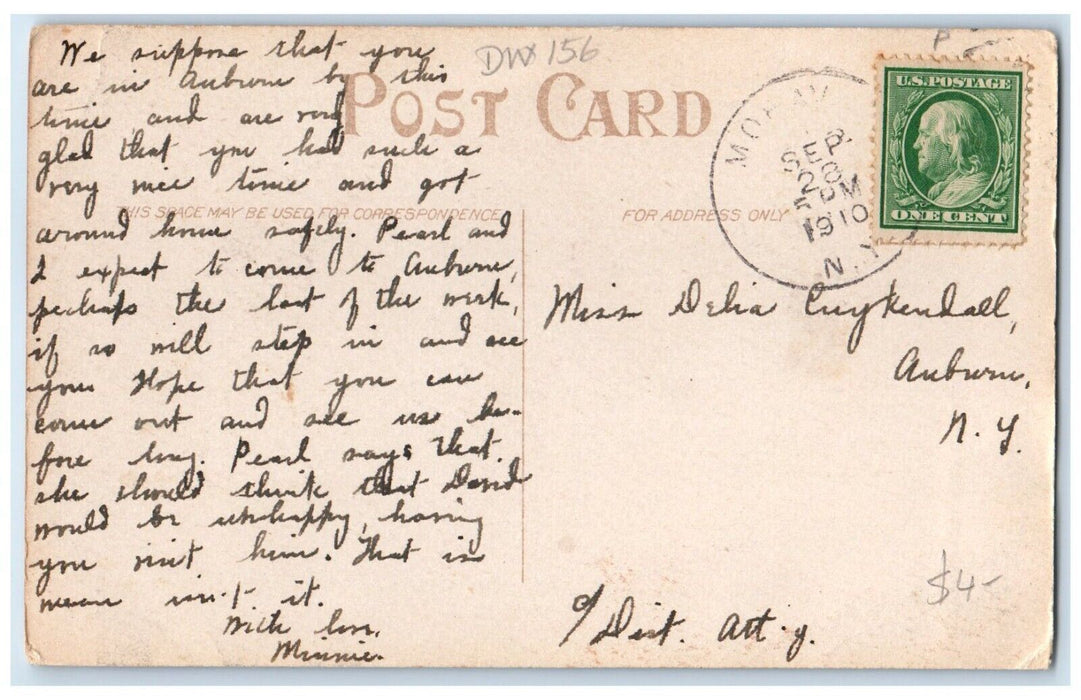 We suppose that you
are in Auburn by this
time and are very
glad that you had such a
very nice time and got
around home safely. Pearl and
I expect to come to Auburn,
perhaps the last of the week,
if so will step in and see
you. Hope that you can
come out and see us be-
fore long. Pearl says that
she should think that David
would be unhappy, having
you visit him. That is
mean isn't it.
With love,
Minnie.
DWX 156
POST CARD
THIS SPACE MAY BE USED FOR CORRESPONDENCE
FOR ADDRESS ONLY
MORAV
SEP
28
PM
1910
N.Y
U.S. POSTAGE
ONE CENT
P
Miss Delia Cuykendall,
Auburn,
N. Y.
c/ Dist. Att'y.
$4-